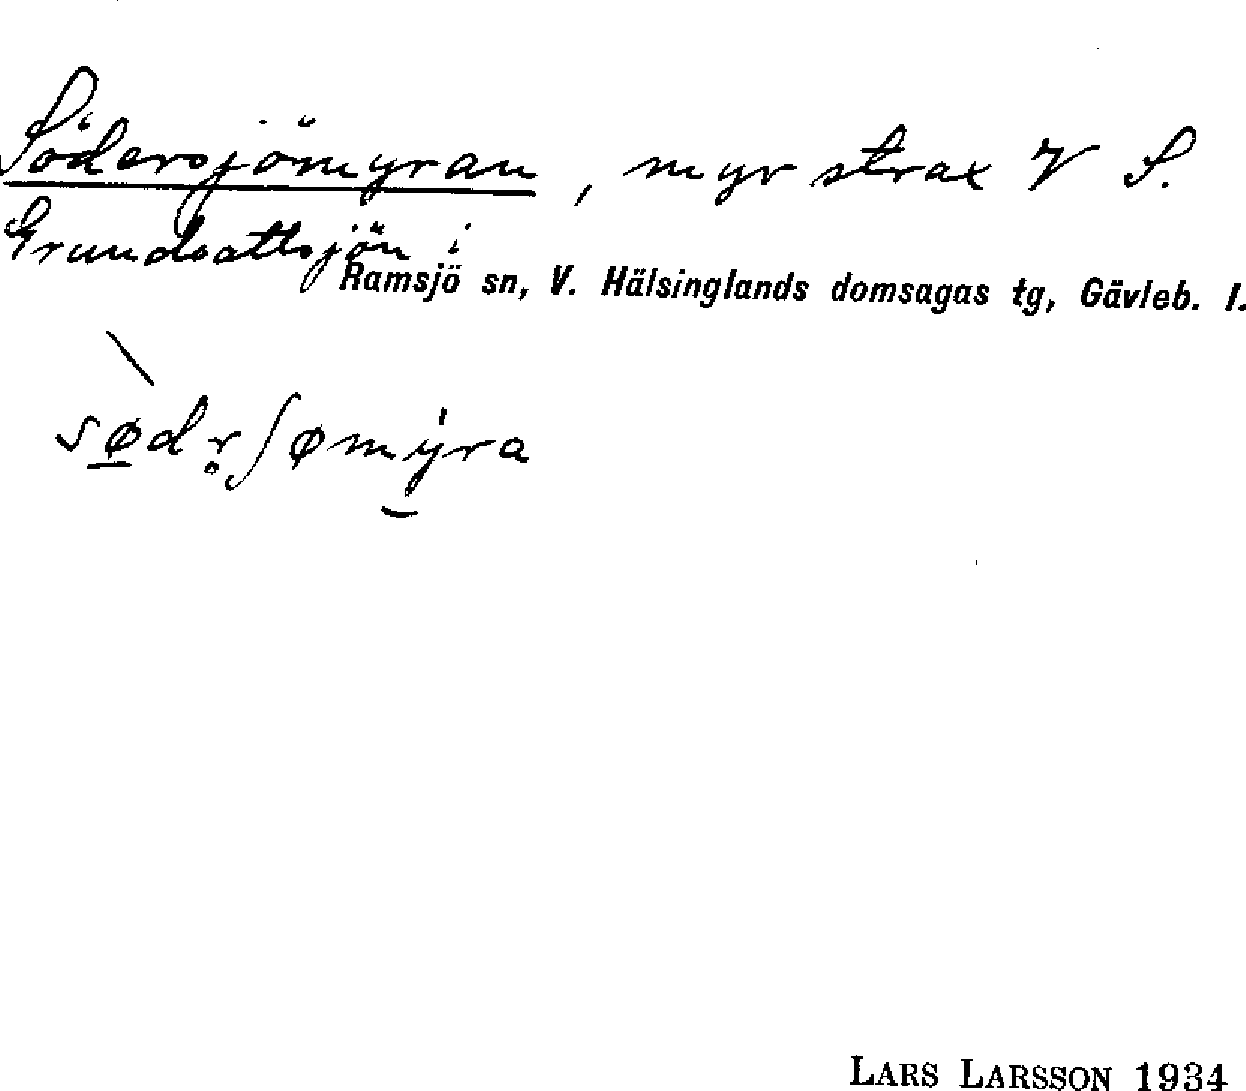 Södersjömyran, myr strax V S.
Grundsattsjön i
Ramsjö sn, V. Hälsinglands domsagas tg, Gävleb. l.
LARS LARSSON 1934